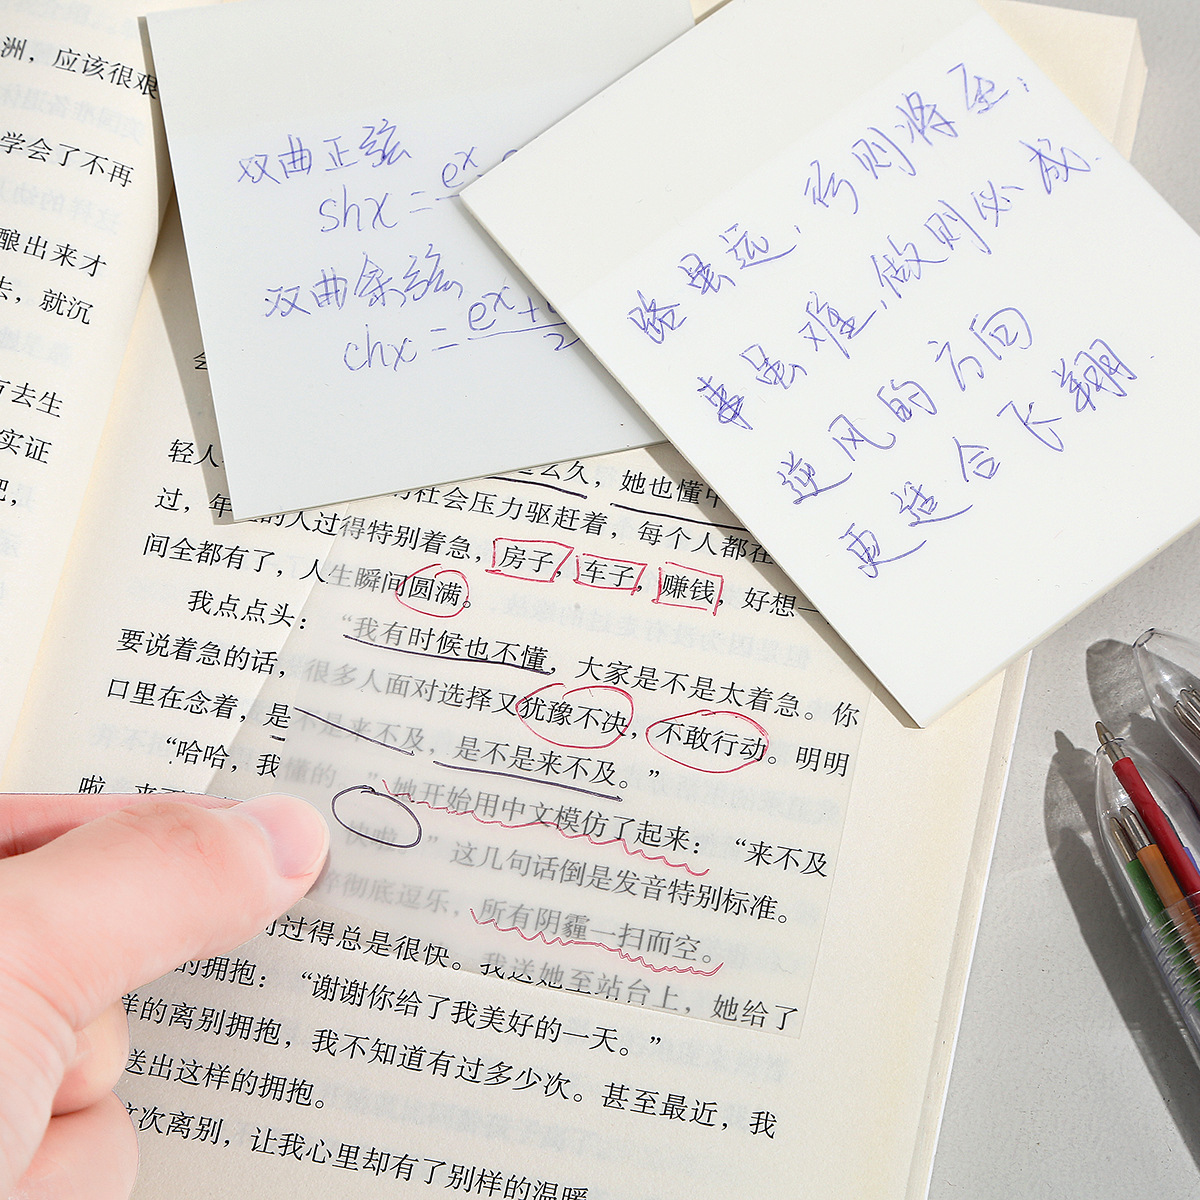 洲，应该很艰
学会了不再
酿出来才
去，就沉
去生
实证
吧，
双曲正弦
shx = e^x
双曲余弦
chx = e^x + 2
路虽远，行则将至；
事虽难，做则必成.
逆风的方向
更适合飞翔
轻人 么久，她也懂中
过，年 的人 社会压力驱赶着，每个人都在
间全都有了，人过得特别着急，房子，车子，赚钱，好想一
人生瞬间圆满。
我点点头：“我有时候也不懂，大家是不是太着急。你
要说着急的话，很多人面对选择又犹豫不决，不敢行动。明明
口里在念着，是不是来不及，是不是来不及。”
“哈哈，我 懂的。”她开始用中文模仿了起来：“来不及
啦，来不 快啦。”这几句话倒是发音特别标准。
彻底逗乐，所有阴霾一扫而空。
过得总是很快。我送她至站台上，她给了
的拥抱：“谢谢你给了我美好的一天。”
样的离别拥抱，我不知道有过多少次。甚至最近，我
送出这样的拥抱。
次离别，让我心里却有了别样的温暖